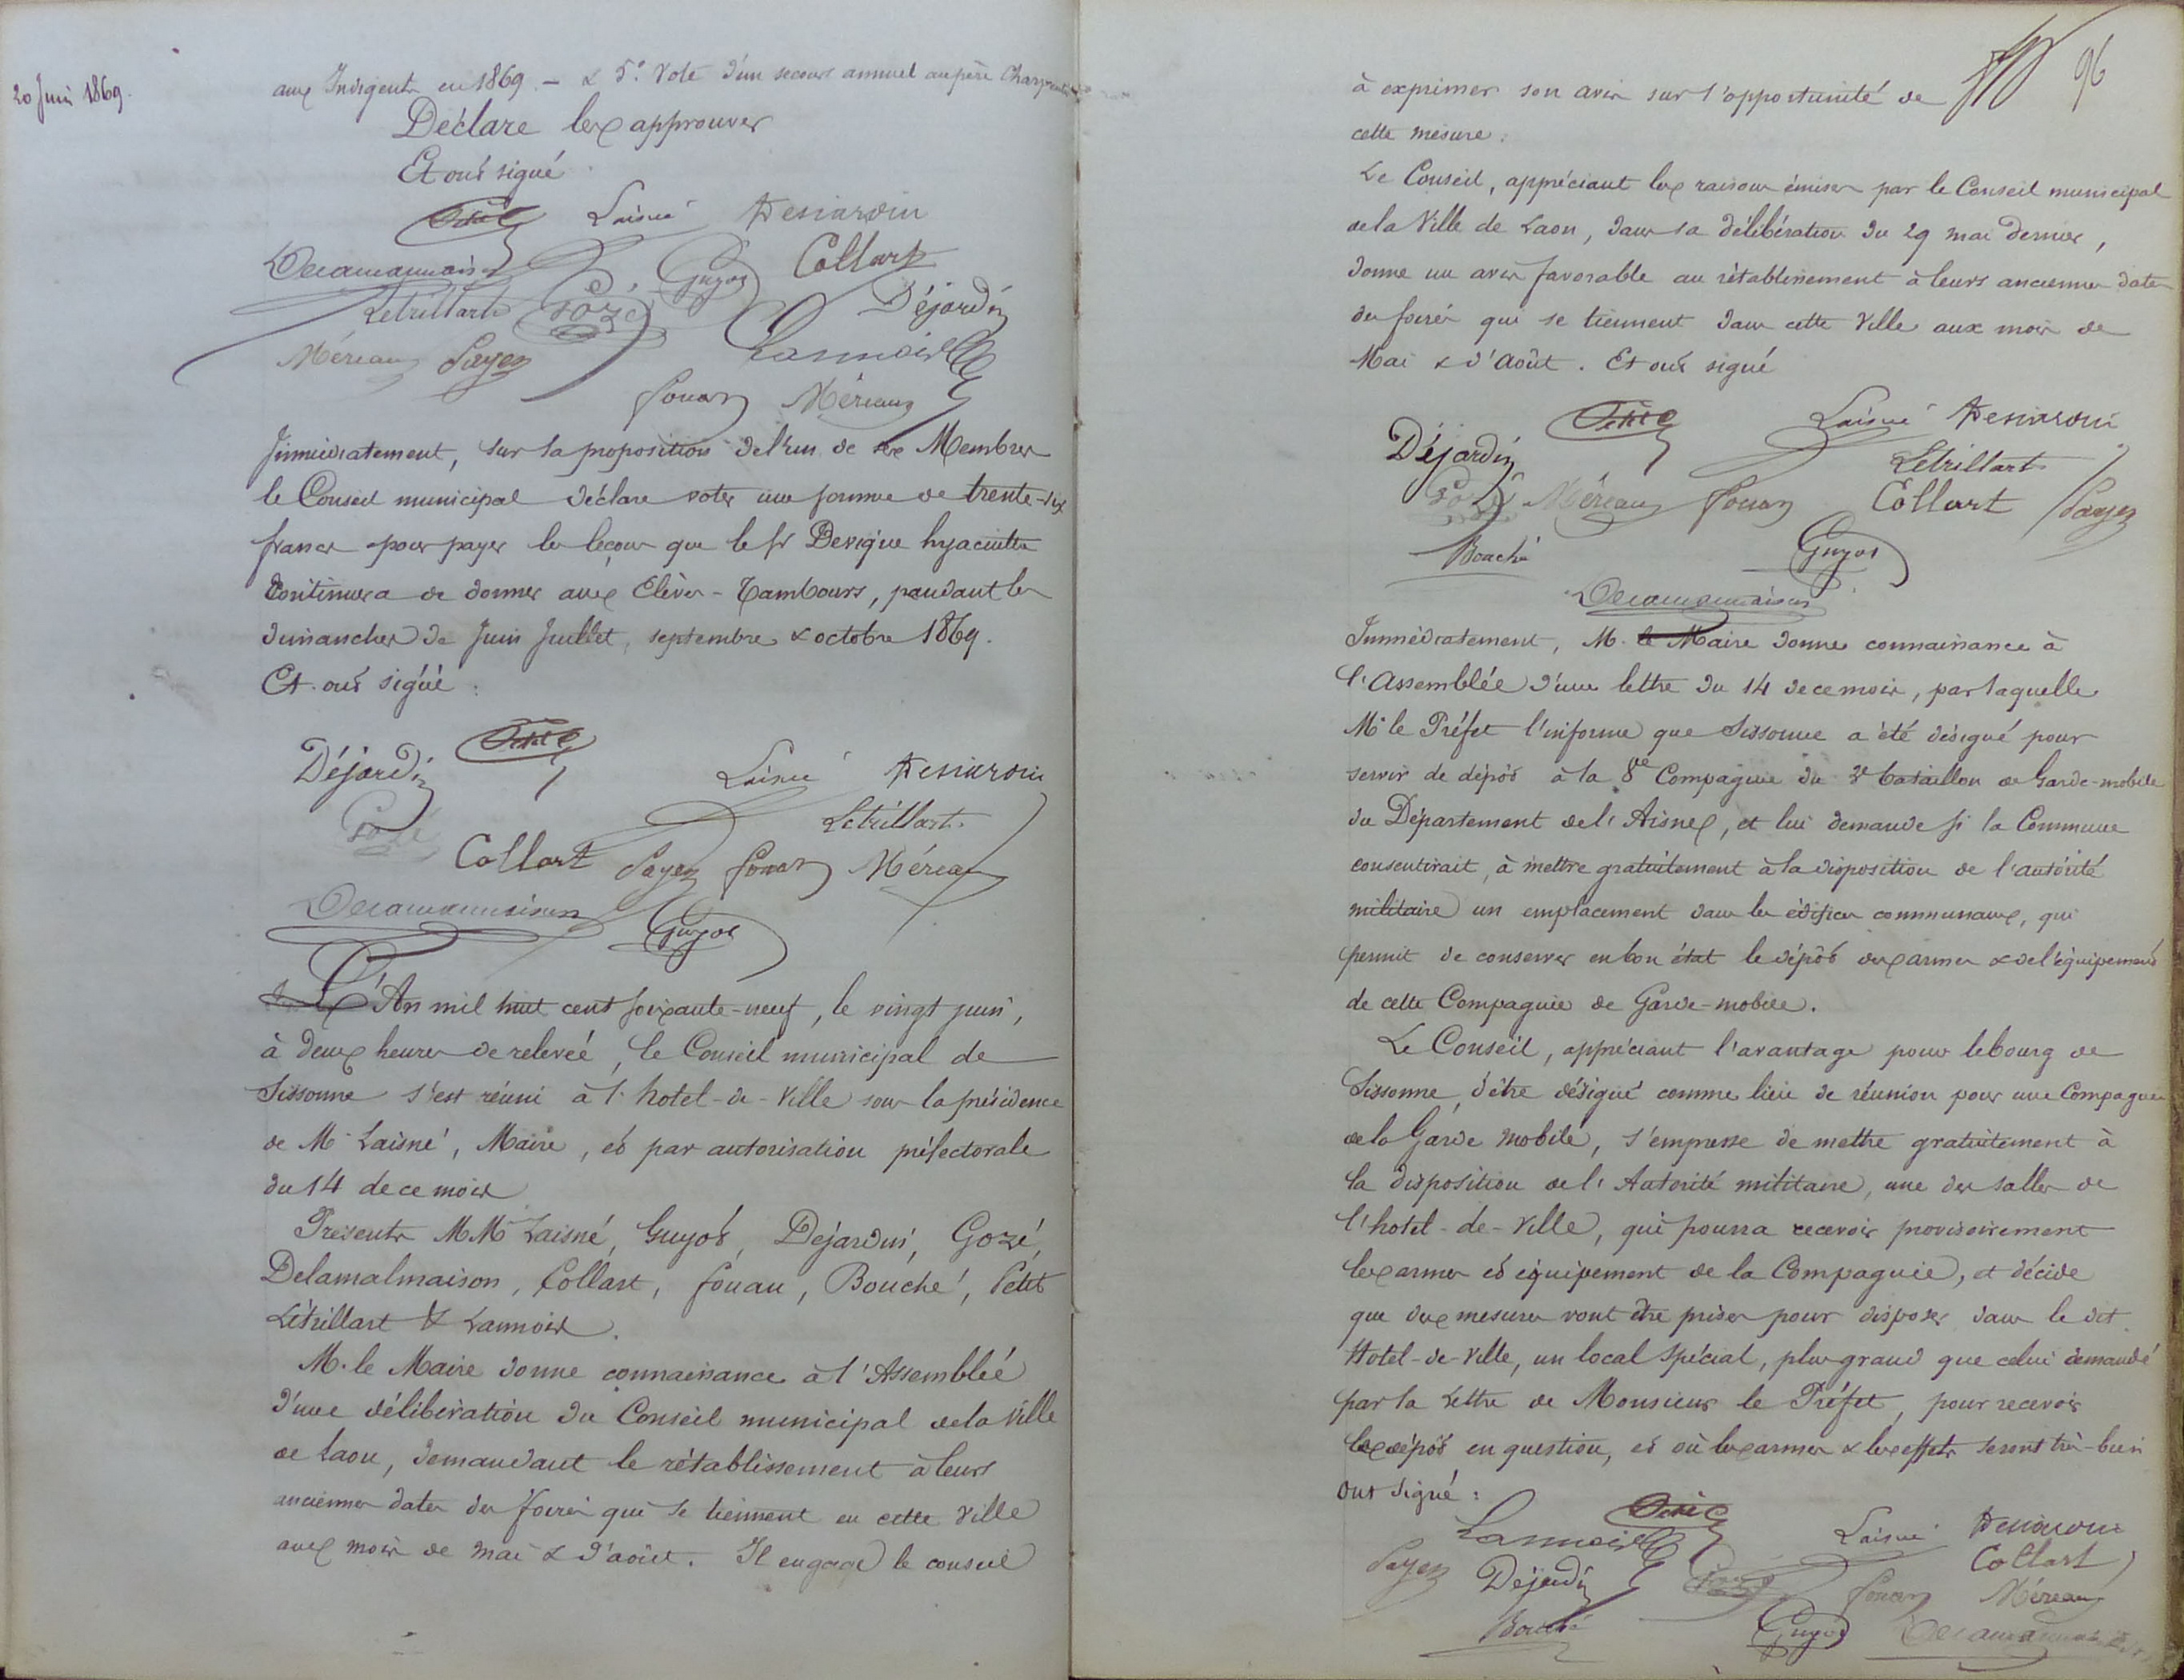 20 Juin 1869.
aux Indigents en 1869. — & 5.° Vote d'un secours annuel au père
Déclare les approuver
Et ont signé
Petit Laisné Desjardin
Delamalmaison Gozé Guyot Collart
Létrillart Déjardin
Méreau Payen Lannois
fouan Méreau
Immédiatement, sur la proposition de l'un de ses Membres
le Conseil municipal déclare voter une somme de trente-six
francs pour payer les leçons que le Sr hyacinthe
Continuera de donner aux Elèves-Tambours, pendant les
dimanches de Juin Juillet, septembre & octobre 1869.
Et ont signé :
Déjardin Petit Laisné Desjardin
Gozé Létrillart
Collart Payen fouan Méreau
Delamalmaison Guyot
L'An mil huit cent soixante-neuf, le vingt juin,
à deux heures de relevée, le Conseil municipal de
Sissonne s'est réuni à l'hotel-de-Ville sous la présidence
de M. Laisné, Maire, et par autorisation préfectorale
du 14 de ce mois
Présents MM Laisné, Guyot, Dejardin, Gozé,
Delamalmaison, Collart, fouan, Bouché, Petit
Létrillart & Lannois.
M. le Maire donne connaissance à l'Assemblée
d'une délibération du Conseil municipal de la Ville
de Laon, demandant le rétablissement à leurs
anciennes dates des foires qui se tiennent en cette Ville
aux mois de mai & d'août. Il engage le conseil
96
à exprimer son avis sur l'opportunité de
cette mesure.
Le Conseil, appréciant les raisons émises par le Conseil municipal
de la Ville de Laon, dans sa délibération du 29 mai dernier,
donne un avis favorable au rétablissement à leurs anciennes dates
des foires qui se tiennent dans cette Ville aux mois de
Mai & d'Août. Et ont signé
Petit Laisné Desjardin
Déjardin Létrillart
Gozé Méreau fouan Collart Payen
Bouché Guyot
Delamalmaison
Immédiatement, M. le Maire donne connaissance à
l'Assemblée d'une lettre du 14 de ce mois, par laquelle
Mr le Préfet l'informe que Sissonne a été désigné pour
servir de dépôt à la 8e Compagnie du bataillon de Garde-mobile
du Département de l'Aisne, et lui demande si la Commune
consentirait, à mettre gratuitement à la disposition de l'autorité
militaire un emplacement dans les édifices communaux, qui
permit de conserver en bon état le dépôt des armes & de l'équipement
de cette Compagnie de Garde-mobile.
Le Conseil, appréciant l'avantage pour le bourg de
Sissonne, d'être désigné comme lieu de réunion pour une Compagnie
de la Garde mobile, s'empresse de mettre gratuitement à
la disposition de l'Autorité militaire, une des salles de
l'hotel-de-Ville, qui pourra recevoir provisoirement
les armes et équipement de la Compagnie, et décide
que des mesures vont être prises pour disposer dans le dit
Hotel-de-Ville, un local spécial, plus grand que celui demandé
par la Lettre de Monsieur le Préfet, pour recevoir
les dépôt en question, et où les armes & les effets seront très-bien
ont signé :
Lannois Petit Laisné Desjardin
Payen Dejardin Gozé fouan Collart
Méreau
Bouché Guyot Delamalmaison